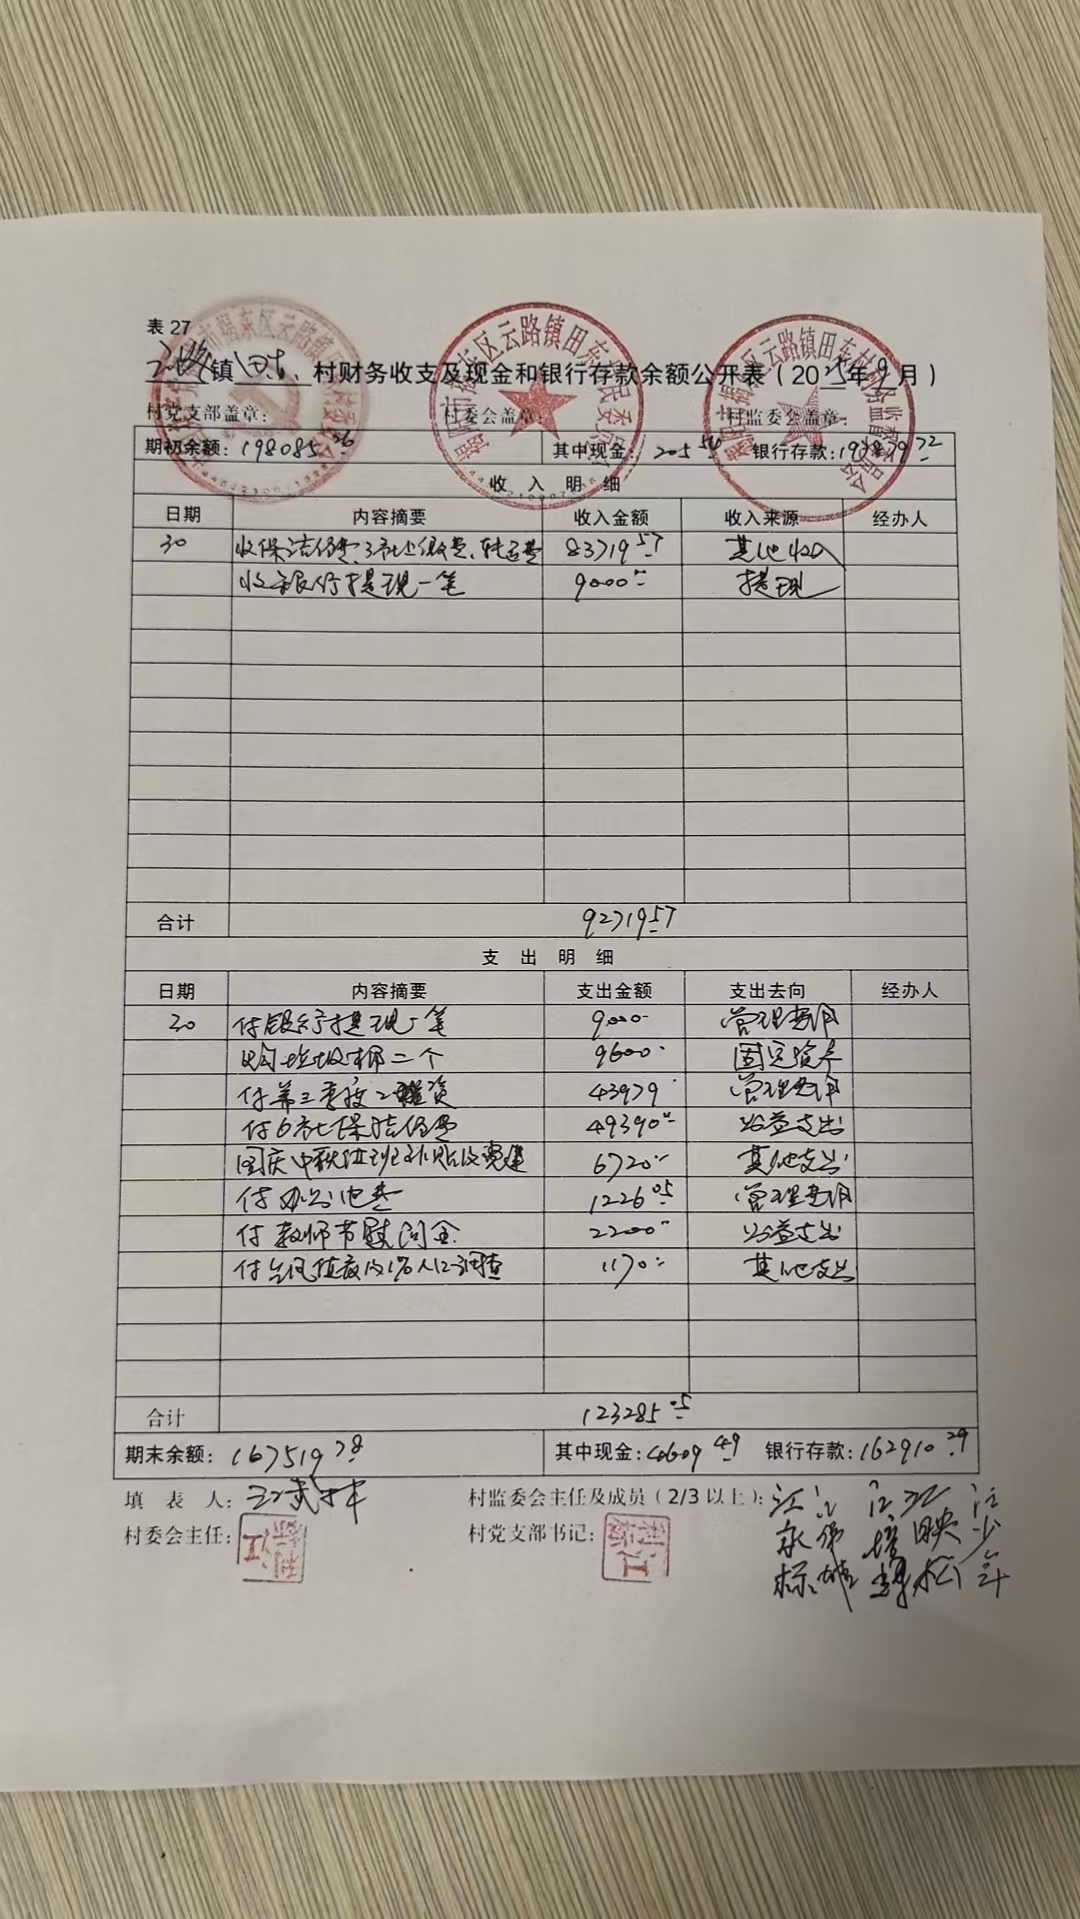 表 27
云路镇田东村财务收支及现金和银行存款余额公开表（2025年9月）
村党支部盖章： 村委会盖章： 村监委会盖章：
期初余额：198085.26 其中现金：205.54 银行存款：197879.72
收 入 明 细
日期 内容摘要 收入金额 收入来源 经办人
30 收保洁经费、 83719.57 其他收入
收银行提现一笔 9000 提现
合计 92719.57
支 出 明 细
日期 内容摘要 支出金额 支出去向 经办人
30 付银行提现一笔 9000 管理费用
购垃圾桶二个 9600 固定资产
付第三季度工资 43979 管理费用
付 保洁经费 49390 公益支出
国庆中秋值班补贴及党建 6720 其他支出
付办公电费 1226.05 管理费用
付教师节慰问金 2200 公益支出
付台风值夜及1%人口调查 1170 其他支出
合计 123285.05
期末余额：167519.78 其中现金：4609.49 银行存款：162910.29
填 表 人：
村监委会主任及成员（2/3 以上）：
村委会主任： 村党支部书记：